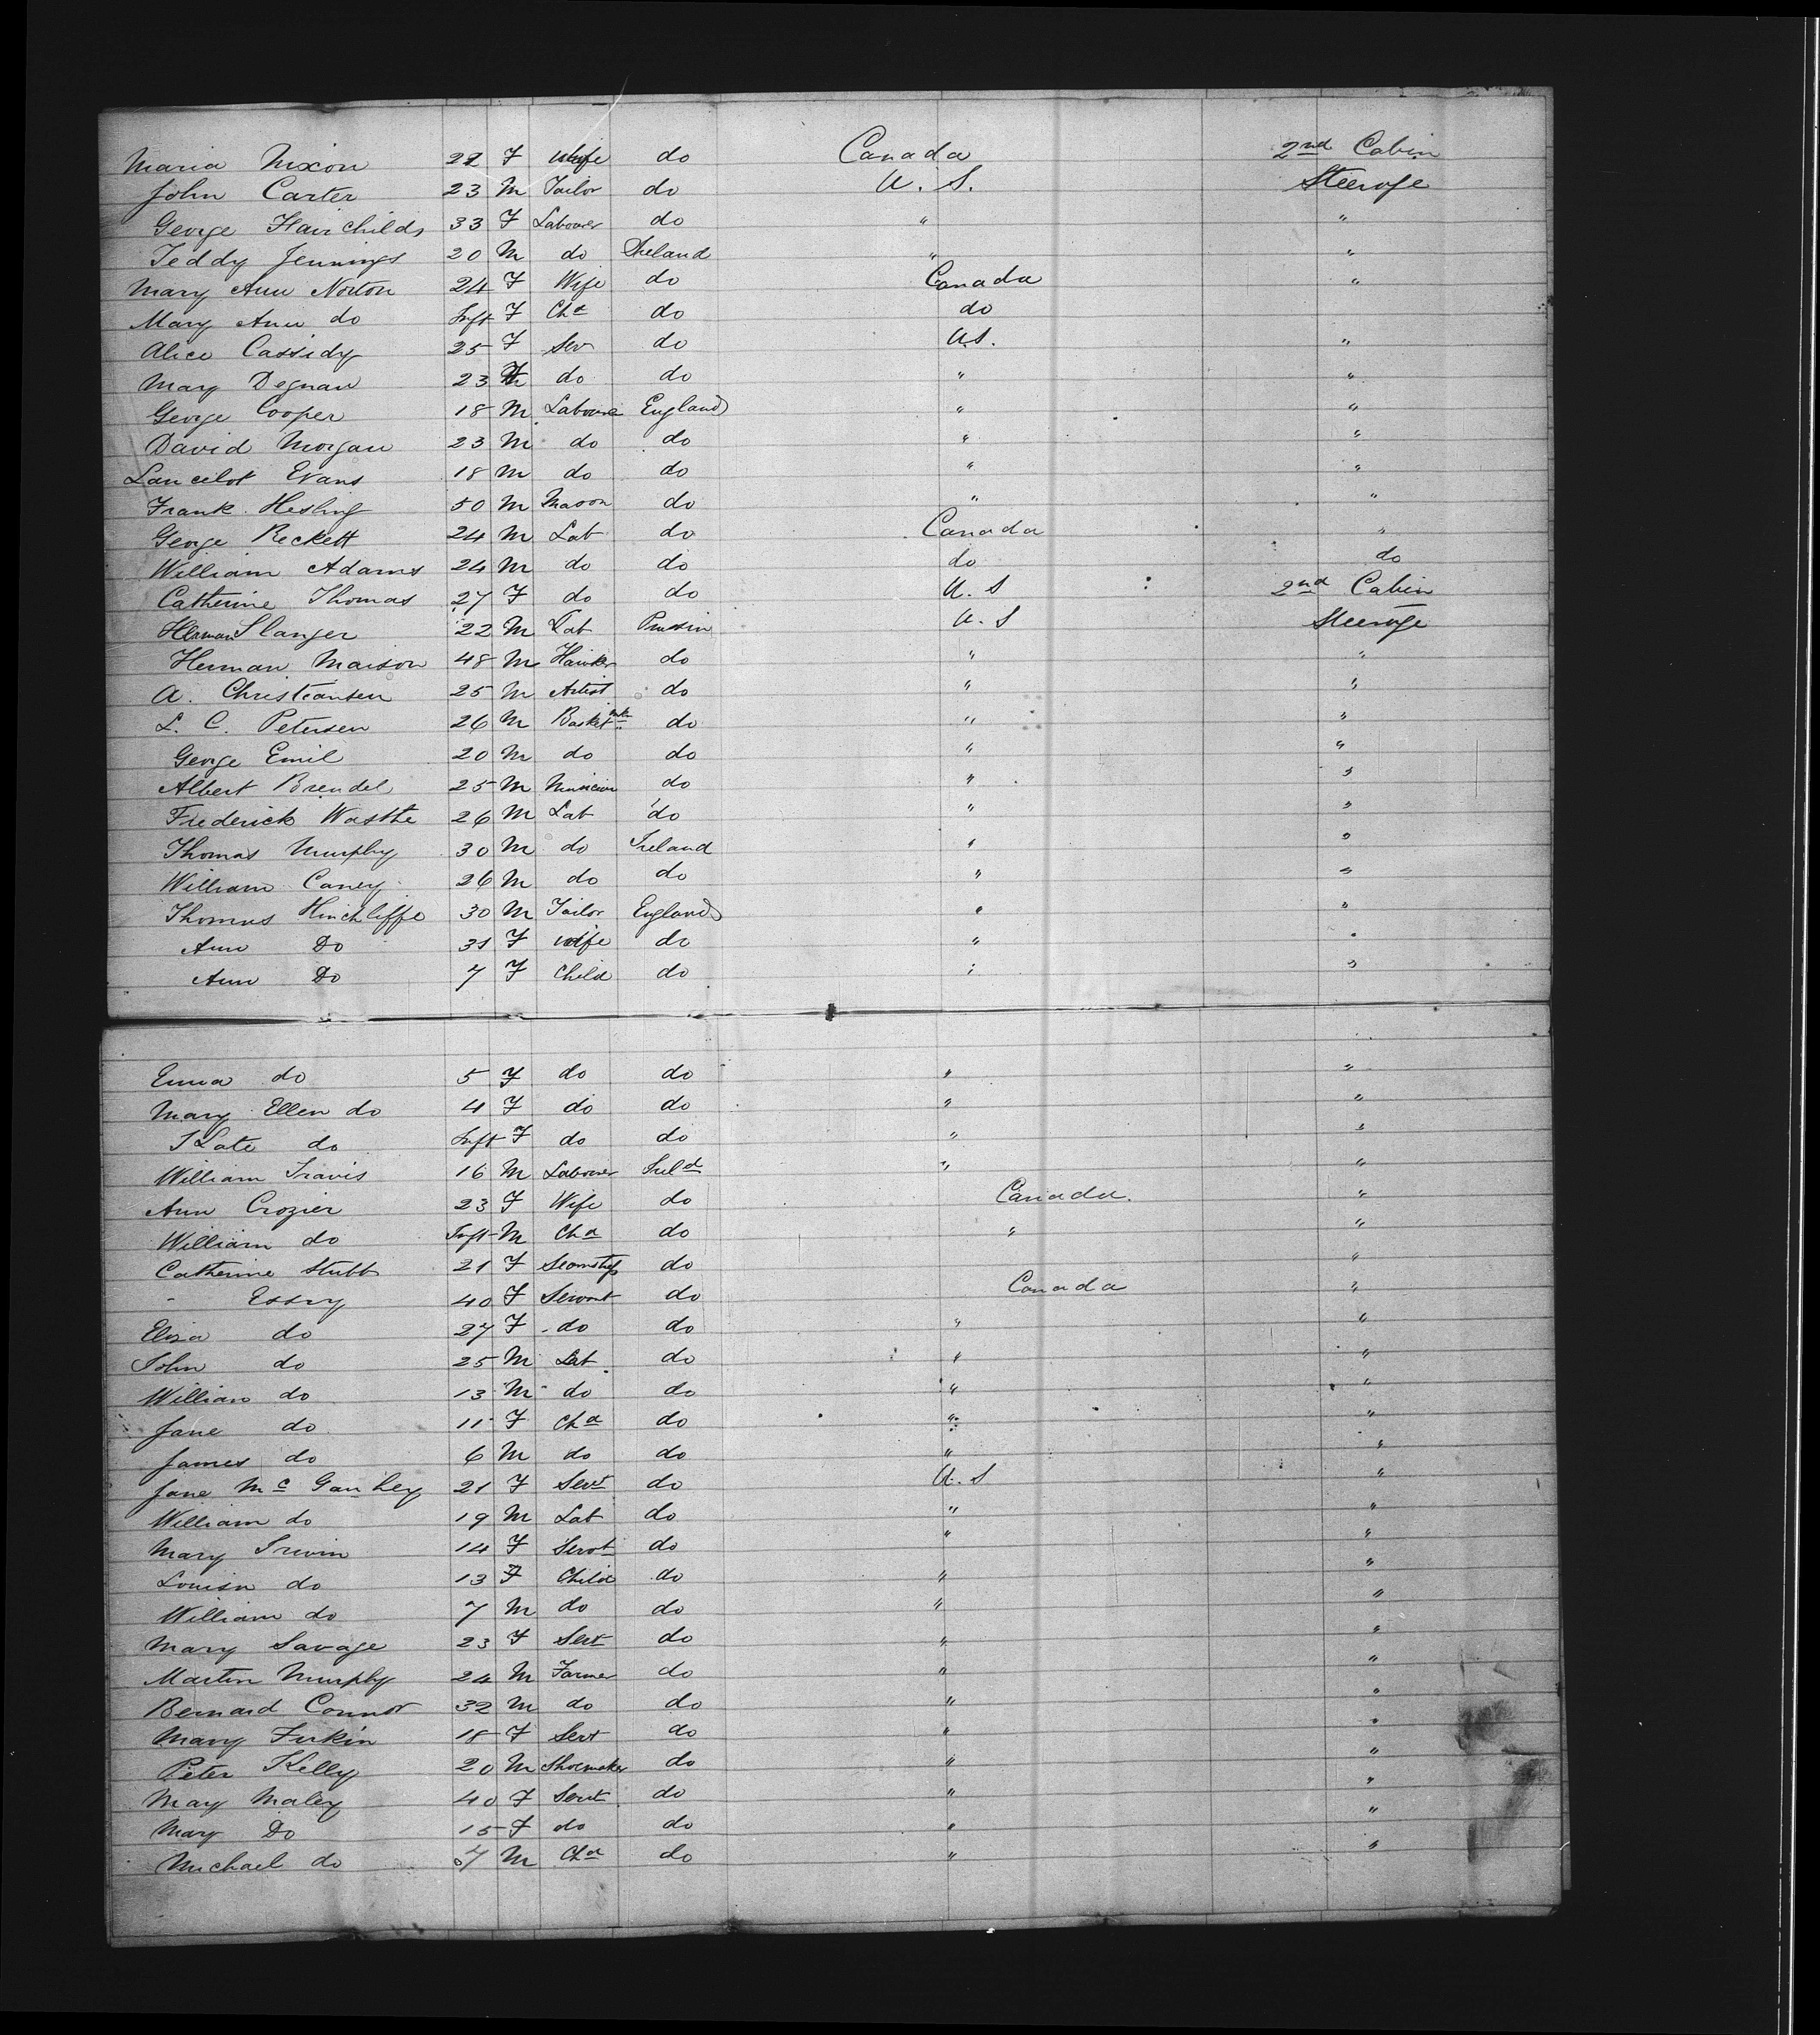 Maria Nixon 22 F Wife do Canada 2nd Cabin
John Carter 23 M Tailor do U.S. Steerage
George Hairchilds 33 F Labourer do " "
Teddy Jennings 20 M do Ireland " "
Mary Ann Norton 24 F Wife do Canada "
Mary Ann do Inft F Chd do do
Alice Cassidy 25 F Ser do U.S. "
Mary Degnan 23 F do do " "
George Cooper 18 M Laboure England " "
David Morgan 23 M do do " "
Lancilot Evans 18 M do do " "
Frank Hesling 50 M Mason do " "
George Beckett 24 M Lab do Canada "
William Adams 24 M do do do do
Catherine Thomas 27 F do do U.S 2nd Cabin
Herman Slanger 22 M Lab Prussia U.S Steerage
Herman Maison 48 M Hawker do " "
A. Christiansen 25 M Artist do " "
L. C. Petersen 26 M Basket mkr do " "
George Emil 20 M do do " "
Albert Brendel 25 M Musician do " "
Frederick Wasthe 26 M Lab do " "
Thomas Murphy 30 M do Ireland " "
William Caney 26 M do do " "
Thomas Hinchliffe 30 M Tailor England " "
Ann Do 31 F Wife do " "
Ann Do 7 F Child do " "
Emma do 5 F do do " "
Mary Ellen do 4 F do do " "
do Inft F do do " "
William Travis 16 M Labourer Ireld " "
Ann Crozier 23 F Wife do Canada. "
William do Inft M Chd do " "
Catherine Stubb 21 F Seamstress do "
- Essry 40 F Servant do Canada "
Eliza do 27 F do do " "
John do 25 M Lab do " "
William do 13 M do do " "
Jane do 11 F Chd do " "
James do 6 M do do " "
Jane Mc Gauhey 21 F Servt do U.S "
William do 19 M Lab do " "
Mary Irwin 14 F Servt do " "
Louisa do 13 F Child do " "
William do 7 M do do " "
Mary Savage 23 F Servt do " "
Martin Murphy 24 M Farmer do " "
Bernard Connor 32 M do do " "
Mary Furkin 18 F Servt do " "
Peter Kelly 20 M Shoemaker do " "
May Maley 40 F Servt do " "
Mary Do 15 F do do " "
Michael do 7 M Chd do " "